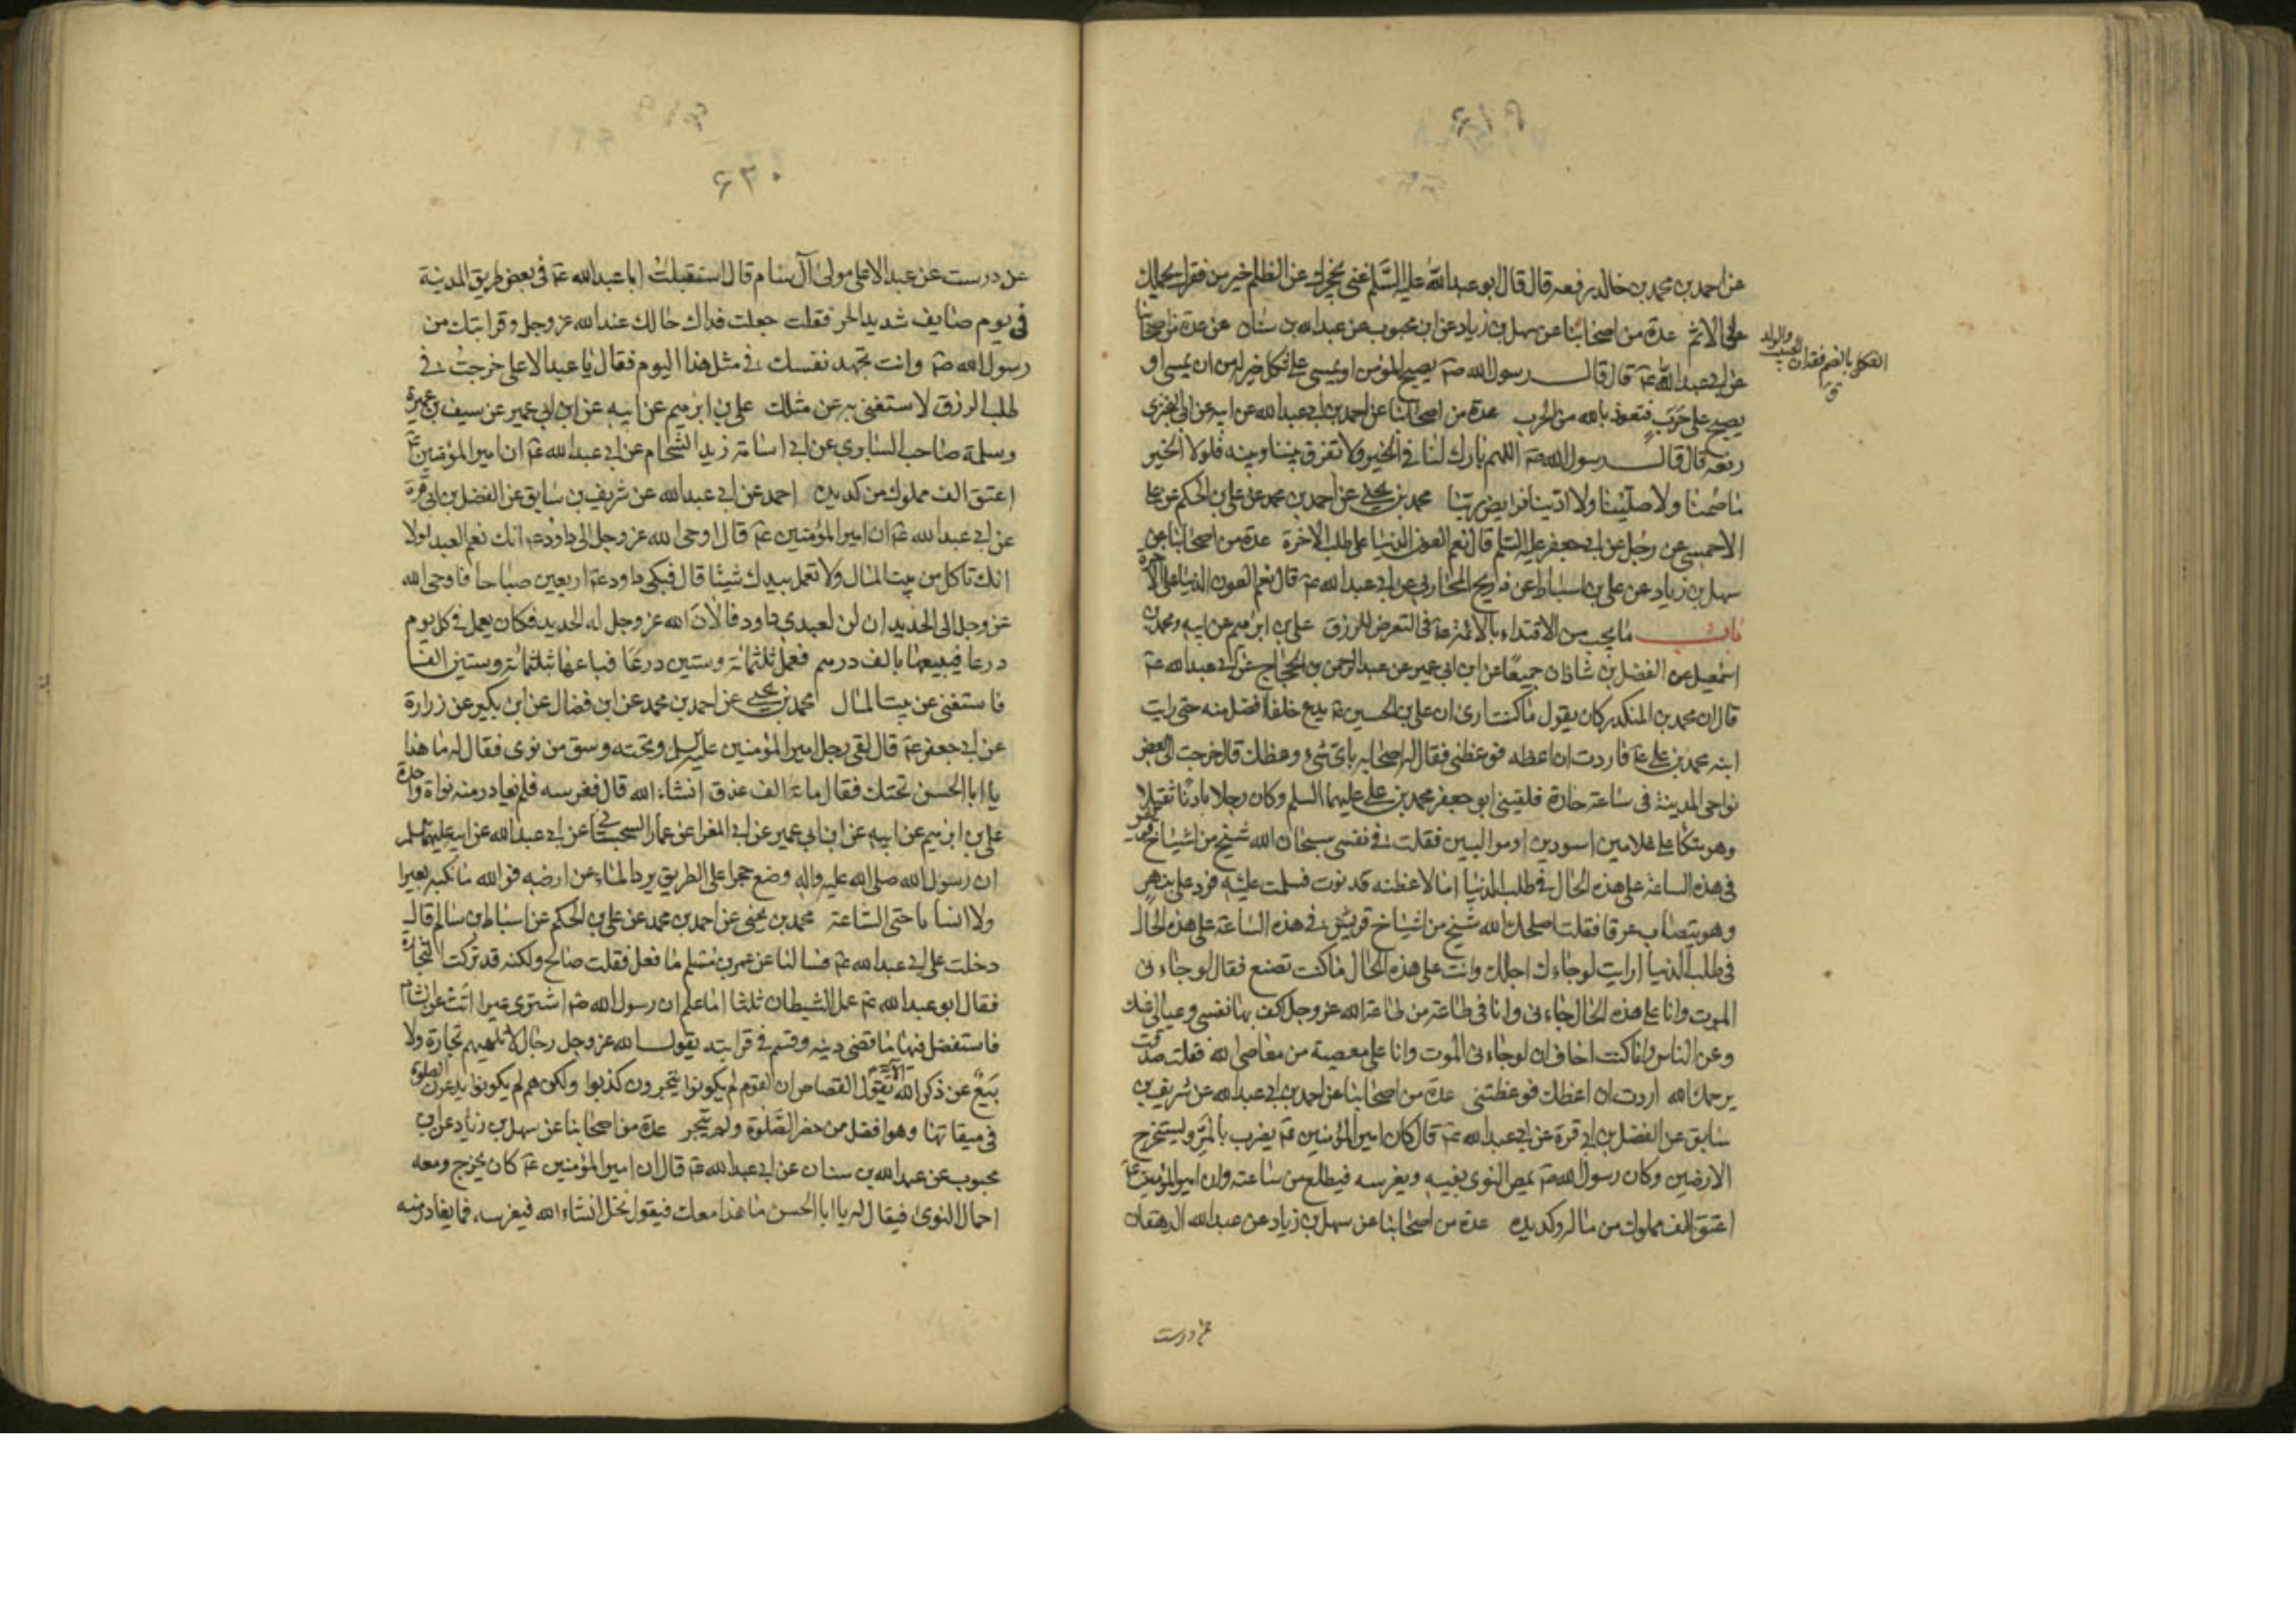 عن احمد بن محمد بن خالد رفعه قال قال ابو عبدالله عليه السلم غنى يحجزك عن الظلم خير من فقر يحملك
على الاثم عدة من اصحابنا عن سهل بن زياد عن ابن محبوب عن عبدالله بن سنان عن عدة من اصحابنا
عن ابي عبدالله عم قال قال رسول الله صم يصبح المؤمن او يمسي على ثكل خير له من ان يمسي او
يصبح على حرب فنعوذ بالله من الحرب عدة من اصحابنا عن احمد بن ابي عبدالله عن ابيه عن ابي البختري
رفعه قال قال رسول الله صم اللهم بارك لنا في الخبز ولا تفرق بيننا وبينه فلولا الخبز
ما صمنا ولا صلينا ولا ادينا فرايض ربنا محمد بن يحيى عن احمد بن محمد عن علي بن الحكم عن علي
الاحمسي عن رجل عن ابي جعفر عليه السلم قال نعم العون الدنيا على طلب الاخرة عدة من اصحابنا عن
سهل بن زياد عن علي بن اسباط عن ذريح المحاربي عن ابي عبدالله عم قال نعم العون الدنيا على الاخرة
باب ما يجب من الاقتداء بالائمة عم في التعرض للرزق علي بن ابرهيم عن ابيه ومحمد بن
اسمعيل عن الفضل بن شاذان جميعا عن ابن ابي عمير عن عبد الرحمن بن الحجاج عن ابي عبدالله عم
قال ان محمد بن المنكدر كان يقول ما كنت ارى ان علي بن الحسين عم يدع خلفا افضل منه حتى رايت
ابنه محمد بن علي عم فاردت ان اعظه فوعظني فقال له اصحابه باي شيء وعظك قال خرجت الى بعض
نواحي المدينة في ساعة حارة فلقيني ابو جعفر محمد بن علي عليهما السلم وكان رجلا بادنا ثقيلا
وهو متكا على غلامين اسودين او موليين فقلت في نفسي سبحان الله شيخ من اشياخ قريش
في هذه الساعة على هذه الحال في طلب الدنيا اما لاعظنه فدنوت فسلمت عليه فرد علي بنهر
وهو يتصاب عرقا فقلت اصلحك الله شيخ من اشياخ قريش في هذه الساعة على هذه الحال
في طلب الدنيا ارايت لو جاءك اجلك وانت على هذه الحال ما كنت تصنع فقال لو جاءني
الموت وانا على هذه الحال جاءني وانا في طاعة من طاعة الله عز وجل اكف بها نفسي وعيالي عنك
وعن الناس وانما كنت اخاف ان لو جاءني الموت وانا على معصية من معاصي الله فقلت صدقت
يرحمك الله اردت ان اعظك فوعظتني عدة من اصحابنا عن احمد بن ابي عبدالله عن شريف بن
سابق عن الفضل بن ابي قرة عن ابي عبدالله عم قال كان امير المؤمنين عم يضرب بالمر ويستخرج
الارضين وكان رسول الله صم يمص النوى بفيه ويغرسه فيطلع من ساعته وان امير المؤمنين عم
اعتق الف مملوك من ماله وكد يده عدة من اصحابنا عن سهل بن زياد عن عبدالله الدهقان
عن درست
الثكل بالضم فقدان الحبيب والولد
ق
٦٢٠
عن درست عن عبد الاعلى مولى آل سام قال استقبلت ابا عبدالله عم في بعض طريق المدينة
في يوم صايف شديد الحر فقلت جعلت فداك حالك عند الله عز وجل وقرابتك من
رسول الله صم وانت تجهد نفسك في مثل هذا اليوم فقال يا عبد الاعلى خرجت في
طلب الرزق لاستغني به عن مثلك علي بن ابرهيم عن ابيه عن ابن ابي عمير عن سيف بن عميرة
وسلمة صاحب السابري عن ابي اسامة زيد الشحام عن ابي عبدالله عم ان امير المؤمنين عم
اعتق الف مملوك من كد يده احمد عن ابي عبدالله عن شريف بن سابق عن الفضل بن ابي قرة
عن ابي عبدالله عم ان امير المؤمنين عم قال اوحى الله عز وجل الى داود عم انك نعم العبد لولا
انك تاكل من بيت المال ولا تعمل بيدك شيئا قال فبكى داود عم اربعين صباحا فاوحى الله
عز وجل الى الحديد ان لن لعبدي داود فالان الله عز وجل له الحديد فكان يعمل في كل يوم
درعا فيبيعها بالف درهم فعمل ثلثمائة وستين درعا فباعها بثلثمائة وستين الفا
فاستغنى عن بيت المال محمد بن يحيى عن احمد بن محمد عن ابن فضال عن ابن بكير عن زرارة
عن ابي جعفر عم قال لقي رجل امير المؤمنين عليه السلم وتحته وسق من نوى فقال له ما هذا
يا ابا الحسن تحتك فقال مائة الف عذق انشاء الله قال فغرسه فلم يغادر منه نواة واحدة
علي بن ابرهيم عن ابيه عن ابن ابي عمير عن ابي المغرا عن عمار السجستاني عن ابي عبدالله عن ابيه عليهما السلم
ان رسول الله صلى الله عليه واله وضع حجرا على الطريق يرد الماء عن ارضه فوالله ما نكب بعيرا
ولا انسانا حتى الساعة محمد بن يحيى عن احمد بن محمد عن علي بن الحكم عن اسباط بن سالم قال
دخلت على ابي عبدالله عم فسالنا عن عمر بن مسلم ما فعل فقلت صالح ولكنه قد ترك التجارة
فقال ابو عبدالله عم عمل الشيطان ثلثا اما علم ان رسول الله صم اشترى عيرا اتت من الشام
فاستفضل فيها ما قضى دينه وقسم في قرابته يقول الله عز وجل رجال لا تلهيهم تجارة ولا
بيع عن ذكر الله الآية يقول القصاص ان القوم لم يكونوا يتجرون كذبوا ولكنهم لم يكونوا يدعون الصلوة
في ميقاتها وهو افضل ممن حضر الصلوة ولم يتجر عدة من اصحابنا عن سهل بن زياد عن ابن
محبوب عن عبدالله بن سنان عن ابي عبدالله عم قال ان امير المؤمنين عم كان يخرج ومعه
احمال النوى فيقال له يا ابا الحسن ما هذا معك فيقول نخل انشاء الله فيغرسه فما يغادر منه